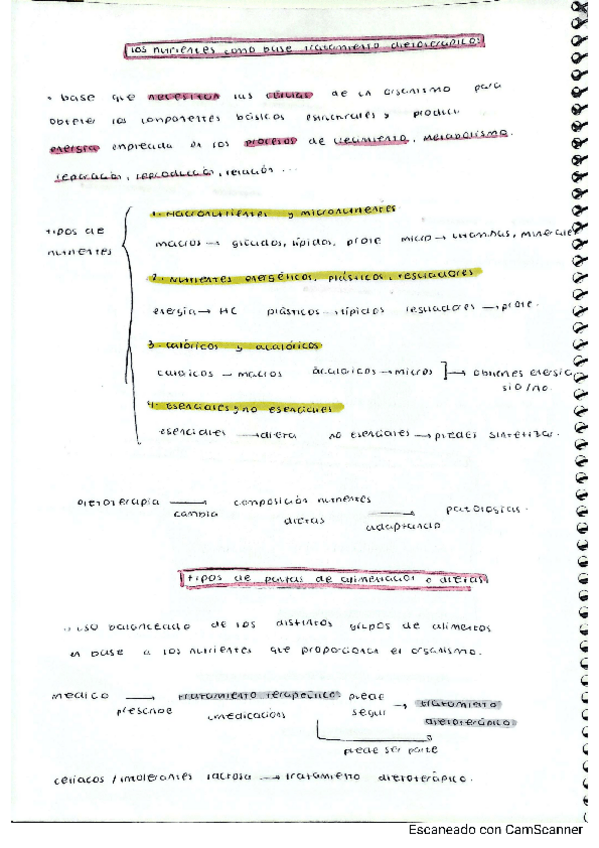 los nutrientes como base tratamiento dietoterapico:
• base que necesitan las células de un organismo para
obtener los componentes básicos estructurales y producir
energía empleada en los procesos de crecimiento, metabolismo,
reparación, reproducción, relación ...
tipos de nutrientes
1. Macronutrientes y micronutrientes
macros → glúcidos, lípidos, prote micro → vitaminas, minerales
2. Nutrientes energéticos, plásticos, reguladores
energía → HC plásticos → lípidos reguladores → prote.
3. calóricos y acalóricos
calóricos → macros acalóricos → micros ] → obtienes energía si o/no.
4. esenciales y no esenciales
esenciales → dieta no esenciales → puedes sintetizar.
dietoterapia → cambia composición nutrientes dietas → adaptando patologías.
tipos de pautas de alimentación o dietas
• uso balanceado de los distintos grupos de alimentos
en base a los nutrientes que proporciona el organismo.
médico → prescribe tratamiento terapeútico (medicación) puede seguir → tratamiento dietoterápico
puede ser parte
celíacos / intolerantes lactosa → tratamiento dietoterápico.
Escaneado con CamScanner